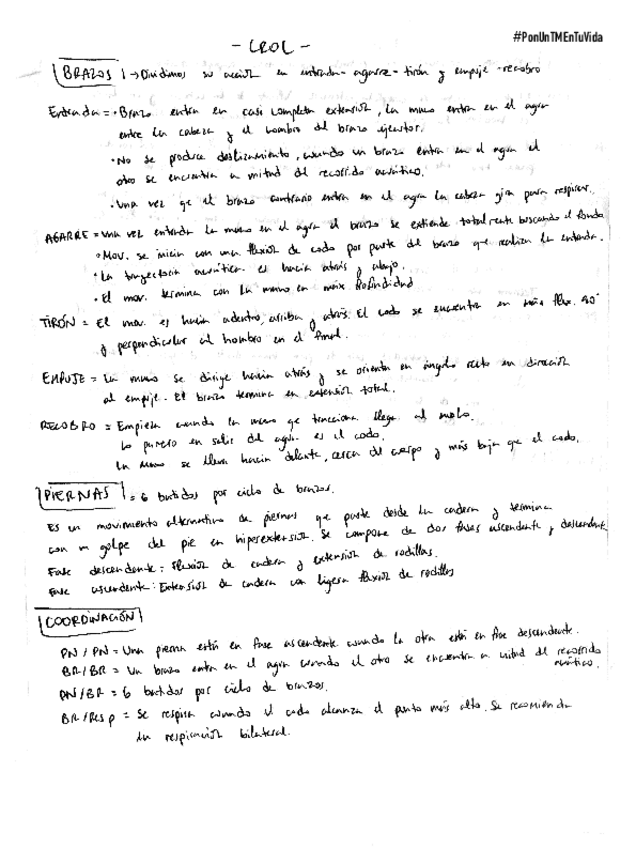 #PonUnTMEnTuVida
- CROL -
BRAZOS → Dividimos su acción en entrada - agarre - tirón y empuje - recobro
Entrada = • Brazo entra en casi completa extensión, la mano entra en el agua
entre la cabeza y el hombro del brazo ejecutor.
• No se produce deslizamiento, cuando un brazo entra en el agua el
otro se encuentra a mitad del recorrido acuático.
• Una vez qe el brazo contrario entra en el agua la cabeza gira para respirar.
AGARRE = una vez entrada la mano en el agua el brazo se extiende totalmente buscando el fondo
• Mov. se inicia con una flexión de codo por parte del brazo que realiza la entrada.
• La trayectoria acuática es hacia atrás y abajo.
• El mov. termina con la mano en máx. Profindidad
TIRÓN = El mov. es hacia adentro, arriba y atrás. El codo se encuentra en máx flex. 90°
y perpendicular al hombro en el final.
EMPUJE = La mano se dirige hacia atrás y se orienta en ángulo recto en dirección
al empuje. El brazo termina en extensión total.
RECOBRO = Empieza cuando la mano qe tracciona llega al muslo.
Lo primero en salir del agua es el codo.
La mano se lleva hacia delante, cerca del cuerpo y más baja que el codo.
PIERNAS = 6 batidos por ciclo de brazos.
Es un movimiento alternativo de piernas que parte desde la cadera y termina
con un golpe del pie en hiperextensión. Se compone de dos fases ascendente y descendente
Fase descendente: Flexión de cadera y extensión de rodillas.
Fase ascendente: Extensión de cadera con ligera flexión de rodillas
COORDINACIÓN
PN / PN = Una pierna está en fase ascendente cuando la otra está en fase descendente.
BR / BR = Un brazo entra en el agua cuando el otro se encuentra a mitad del recorrido
acuático.
PN / BR = 6 batidos por ciclo de brazos.
BR / Resp = Se respira cuando el codo alcanza el punto más alto. Se recomienda
la respiración bilateral.